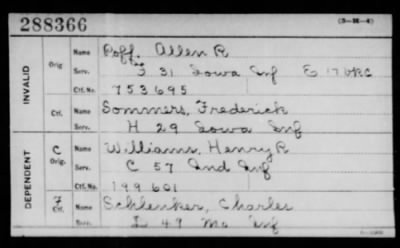 288366
(3-M-4)
INVALID
Orig. Name Poff, Allen R
Serv. 31 Iowa Inf E 17 VRC
Ctf. No. 753695
Ctf. Name Sommers, Frederick
Serv. H 29 Iowa Inf
DEPENDENT
C Orig. Name Williams, Henry R
Serv. C 57 Ind Inf
Ctf. No. 199601
Ctf. Name Schlenker, Charles
Serv. 49 Mo Inf